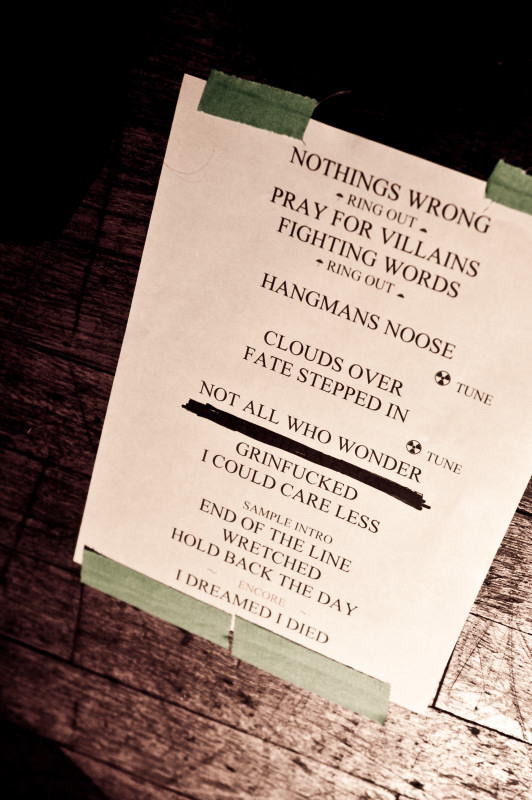 NOTHINGS WRONG
RING OUT
PRAY FOR VILLAINS
FIGHTING WORDS
RING OUT
HANGMANS NOOSE
CLOUDS OVER
TUNE
FATE STEPPED IN
NOT ALL WHO WONDER
TUNE
GRINFUCKED
I COULD CARE LESS
SAMPLE INTRO
END OF THE LINE
WRETCHED
HOLD BACK THE DAY
~ ENCORE ~
I DREAMED I DIED